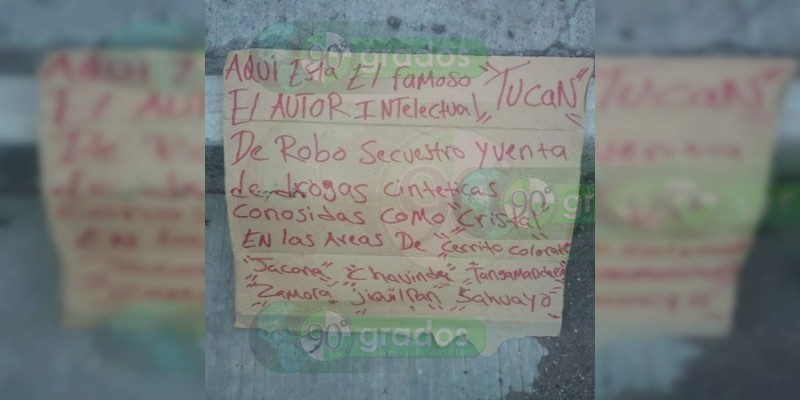 Aqui Esta El famoso "TUCAN"
El AUTOR INtelectual
De Robo Secuestro y venta
de drogas cinteticas
conosidas como "Cristal"
EN las Areas De "Cerrito Colorado"
"Jacona" "Chavinda" "Tangamandapio"
"Zamora" "jiquilpan" "Sahuayo"
90° grados